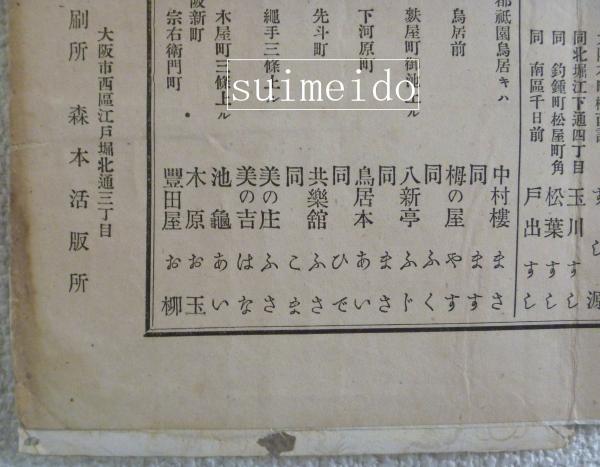 同北堀江下通四丁目 玉川すし
同 釣鐘町松屋町角 松葉すし
同 南區千日前 戸出すし
都祇園鳥居キハ 中村樓 まさ
同 ます
鳥居前 栂の屋 やす
同 ふく
麩屋町御池上ル 八新亭 ふじ
同 まさ
下河原町 鳥居本 あい
同 ひで
先斗町 共樂館 ふさ
同 こま
繩手三條上ル 美の庄 ふさ
美の吉 はな
木屋町三條上ル 池龜 あい
阪新町 木原 お玉
宗右衛門町 豐田屋 お柳
大阪市西區江戸堀北通三丁目
刷所 森本活版所
suimeido